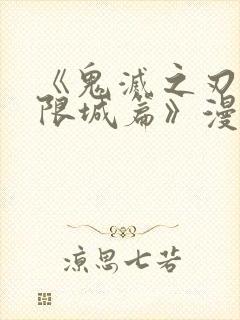 《鬼滅之刃
限城篇》漫
凉思七若